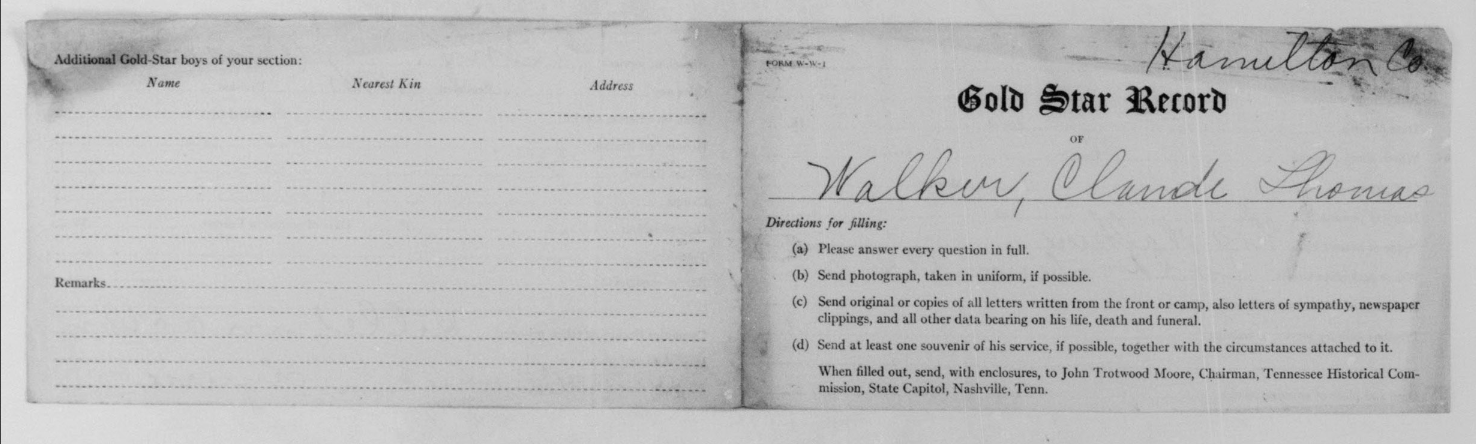 Additional Gold-Star boys of your section:
Name Nearest Kin Address
Remarks
Hamilton Co
FORM W-W-1
Gold Star Record
OF
Walker, Claude Thomas
Directions for filling:
(a) Please answer every question in full.
(b) Send photograph, taken in uniform, if possible.
(c) Send original or copies of all letters written from the front or camp, also letters of sympathy, newspaper
clippings, and all other data bearing on his life, death and funeral.
(d) Send at least one souvenir of his service, if possible, together with the circumstances attached to it.
When filled out, send, with enclosures, to John Trotwood Moore, Chairman, Tennessee Historical Com-
mission, State Capitol, Nashville, Tenn.